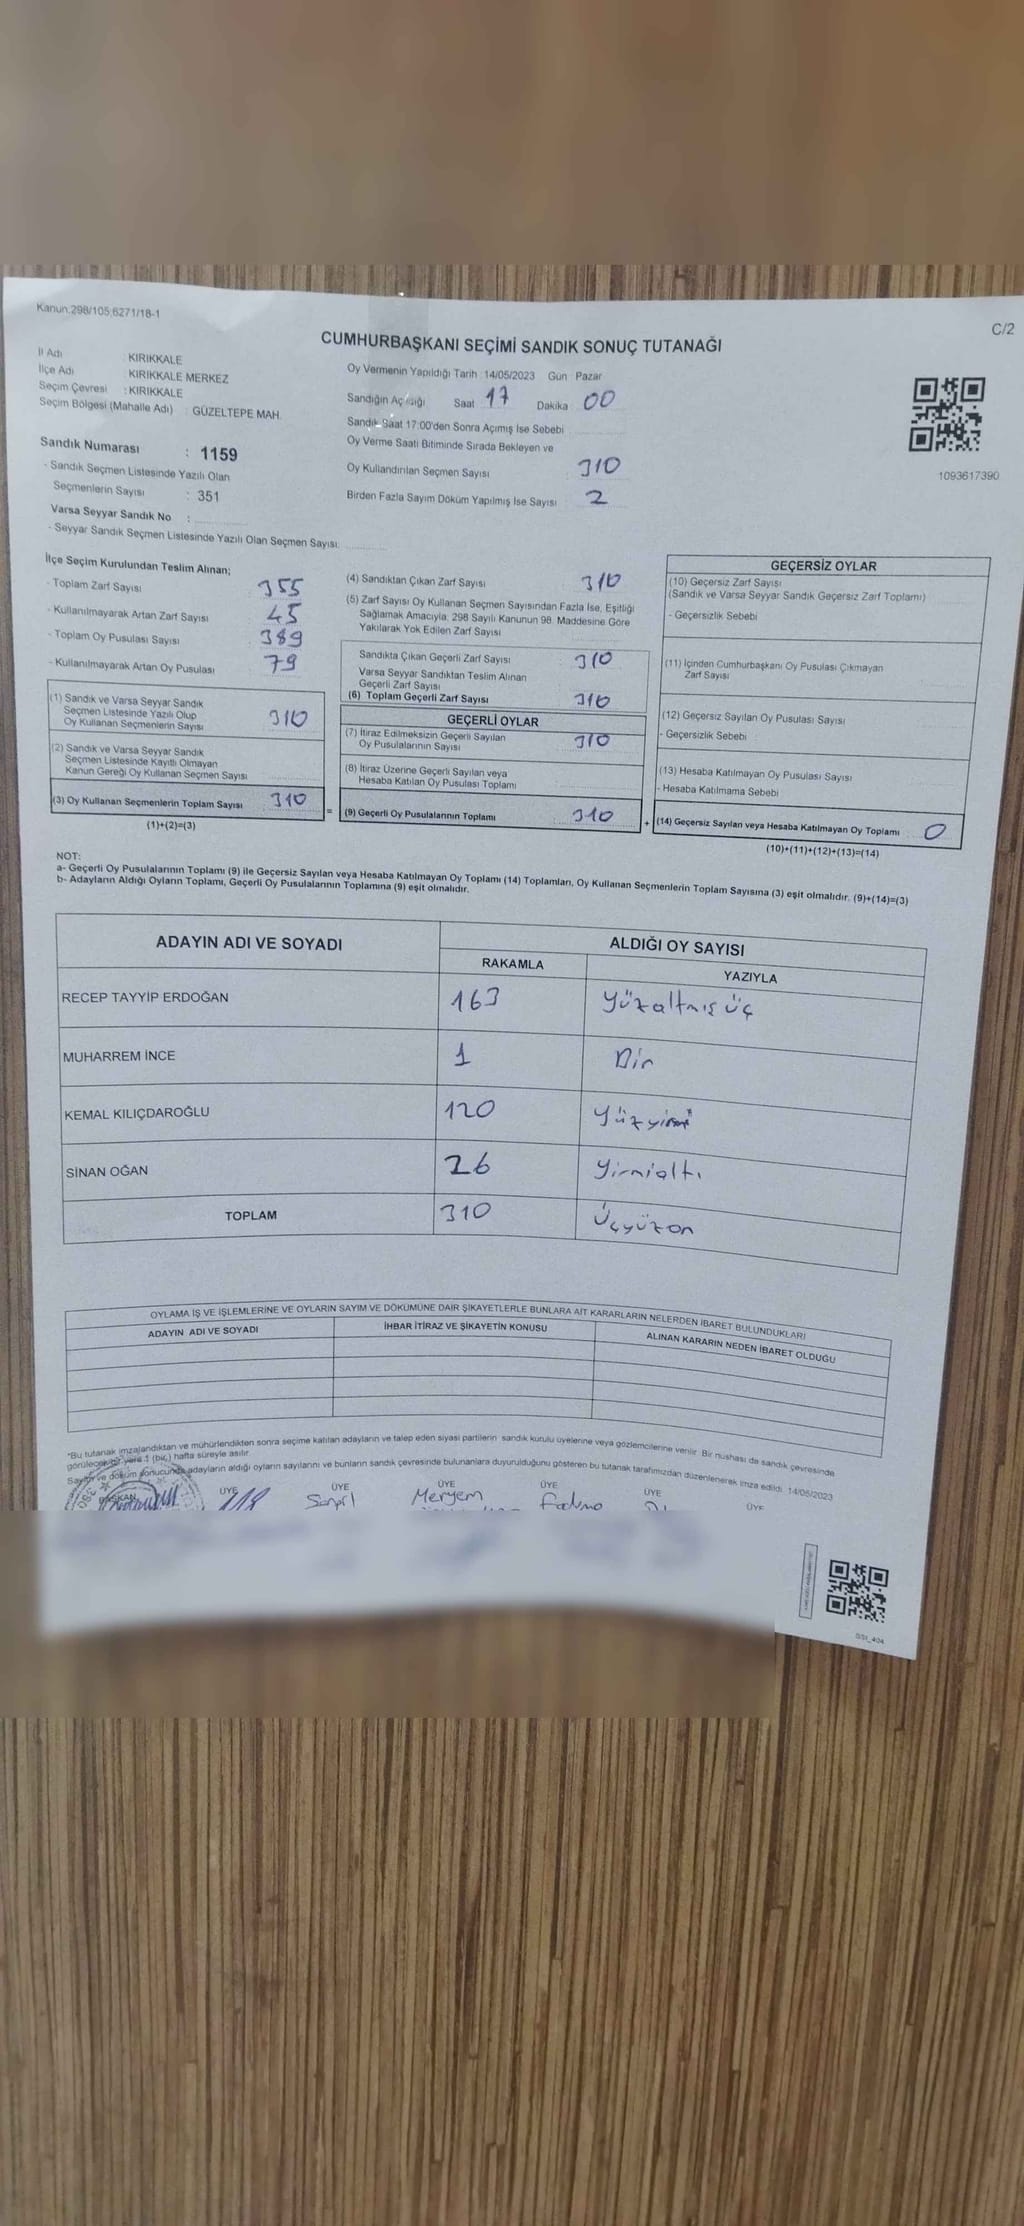 Kanun.298/105,6271/18-1
C/2
CUMHURBAŞKANI SEÇİMİ SANDIK SONUÇ TUTANAĞI
İl Adı : KIRIKKALE
İlçe Adı : KIRIKKALE MERKEZ
Seçim Çevresi : KIRIKKALE
Seçim Bölgesi (Mahalle Adı) : GÜZELTEPE MAH.
Oy Vermenin Yapıldığı Tarih : 14/05/2023 Gün : Pazar
Sandığın Açıldığı Saat 17 Dakika 00
Sandık Saat 17:00'den Sonra Açımış İse Sebebi
Oy Verme Saati Bitiminde Sırada Bekleyen ve
Oy Kullandırılan Seçmen Sayısı 310
Birden Fazla Sayım Döküm Yapılmış İse Sayısı 2
1093617390
Sandık Numarası : 1159
- Sandık Seçmen Listesinde Yazılı Olan
Seçmenlerin Sayısı : 351
Varsa Seyyar Sandık No :
- Seyyar Sandık Seçmen Listesinde Yazılı Olan Seçmen Sayısı:
İlçe Seçim Kurulundan Teslim Alınan;
- Toplam Zarf Sayısı 355
- Kullanılmayarak Artan Zarf Sayısı 45
- Toplam Oy Pusulası Sayısı 389
- Kullanılmayarak Artan Oy Pusulası 79
(1) Sandık ve Varsa Seyyar Sandık
Seçmen Listesinde Yazılı Olup
Oy Kullanan Seçmenlerin Sayısı 310
(2) Sandık ve Varsa Seyyar Sandık
Seçmen Listesinde Kayıtlı Olmayan
Kanun Gereği Oy Kullanan Seçmen Sayısı
(3) Oy Kullanan Seçmenlerin Toplam Sayısı 310
(1)+(2)=(3)
=
(4) Sandıktan Çıkan Zarf Sayısı 310
(5) Zarf Sayısı Oy Kullanan Seçmen Sayısından Fazla İse, Eşitliği
Sağlamak Amacıyla, 298 Sayılı Kanunun 98. Maddesine Göre
Yakılarak Yok Edilen Zarf Sayısı
Sandıkta Çıkan Geçerli Zarf Sayısı 310
Varsa Seyyar Sandıktan Teslim Alınan
Geçerli Zarf Sayısı
(6) Toplam Geçerli Zarf Sayısı 310
GEÇERLİ OYLAR
(7) İtiraz Edilmeksizin Geçerli Sayılan
Oy Pusulalarının Sayısı 310
(8) İtiraz Üzerine Geçerli Sayılan veya
Hesaba Katılan Oy Pusulası Toplamı
(9) Geçerli Oy Pusulalarının Toplamı 310
+
GEÇERSİZ OYLAR
(10) Geçersiz Zarf Sayısı
(Sandık ve Varsa Seyyar Sandık Geçersiz Zarf Toplamı)
- Geçersizlik Sebebi
(11) İçinden Cumhurbaşkanı Oy Pusulası Çıkmayan
Zarf Sayısı
(12) Geçersiz Sayılan Oy Pusulası Sayısı
- Geçersizlik Sebebi
(13) Hesaba Katılmayan Oy Pusulası Sayısı
- Hesaba Katılmama Sebebi
(14) Geçersiz Sayılan veya Hesaba Katılmayan Oy Toplamı 0
(10)+(11)+(12)+(13)=(14)
NOT:
a- Geçerli Oy Pusulalarının Toplamı (9) ile Geçersiz Sayılan veya Hesaba Katılmayan Oy Toplamı (14) Toplamları, Oy Kullanan Seçmenlerin Toplam Sayısına (3) eşit olmalıdır. (9)+(14)=(3)
b- Adayların Aldığı Oyların Toplamı, Geçerli Oy Pusulalarının Toplamına (9) eşit olmalıdır.
ADAYIN ADI VE SOYADI ALDIĞI OY SAYISI
RAKAMLA YAZIYLA
RECEP TAYYİP ERDOĞAN 163 Yüzaltmış üç
MUHARREM İNCE 1 Bir
KEMAL KILIÇDAROĞLU 120 Yüzyirmi
SİNAN OĞAN 26 Yirmialtı
TOPLAM 310 Üçyüzon
OYLAMA İŞ VE İŞLEMLERİNE VE OYLARIN SAYIM VE DÖKÜMÜNE DAİR ŞİKAYETLERLE BUNLARA AİT KARARLARIN NELERDEN İBARET BULUNDUKLARI
ADAYIN ADI VE SOYADI İHBAR İTİRAZ VE ŞİKAYETİN KONUSU ALINAN KARARIN NEDEN İBARET OLDUĞU
*Bu tutanak imzalandıktan ve mühürlendikten sonra seçime katılan adayların ve talep eden siyasi partilerin sandık kurulu üyelerine veya gözlemcilerine verilir. Bir nushası da sandık çevresinde
görülecek bir yere 1 (bir) hafta süreyle asılır.
Sayım ve döküm sonucunda adayların aldığı oyların sayılarını ve bunların sandık çevresinde bulunanlara duyurulduğunu gösteren bu tutanak tarafımızdan düzenlenerek imza edildi. 14/05/2023
BAŞKAN ÜYE ÜYE ÜYE ÜYE ÜYE ÜYE
Meryem Fadıma
SSI_404